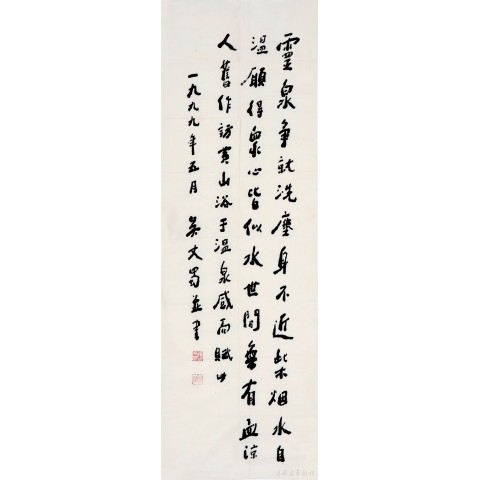 靈泉爭就洗塵身不近柴烟水自
溫願得眾心皆似水世間無有血涼
人舊作訪黃山浴于溫泉感而賦此
一九九九年五月 吳丈蜀並書